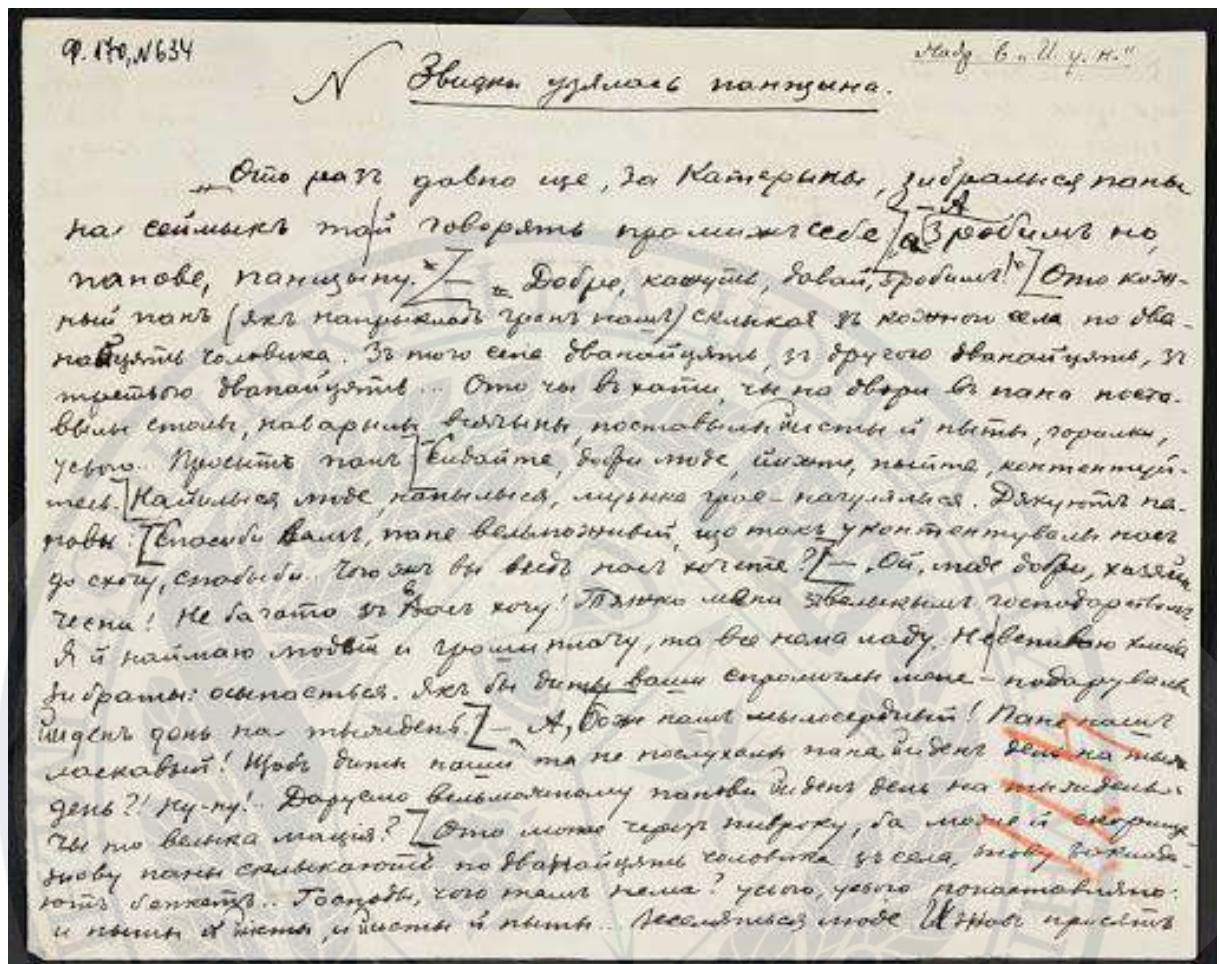 Ф. 170, N 634
Надр. в „И. у. Н."
N Звидки узялась панщына.
„Ото разъ давно ще, за Катерыны, зибралыся паны
на сеймыкъ тай говорять промижъ себе [– А зробимъ но,
панове, панщыну." [– „Добре, кажуть, давай, зробимъ!" [Ото кож-
ный панъ (якъ напрыкладъ грапъ нашъ) склыкає зъ кожного села по два-
найцять чоловика. Зъ того села дванайцять, зъ другого дванайцять, зъ
третього дванайцять... Ото чы въ хати, чы на двори въ пана поста-
вылы столы, наварылы всячыны, поставылы йисты й пыты, горилкы,
усього.. Просыть панъ [Сидайте, добри люде, йижте, пыйте, контентуй-
тесь. [Найилыся люде, напылыся, музыка грає – нагулялыся. Дякують па-
новы: [Спасыби вамъ, пане вельможный, що такъ уконтентувалы насъ
до схочу, спасыби.. Чого жъ вы видъ насъ хочете? [– „Ой, люде добри, хазяйи
чесни! Не багато зъ васъ хочу! Тяжко мени зъ велыкымъ господарствомъ
Я й наймаю людей и гроши плачу, та все нема ладу. Не встыгаю хлиба
зибраты: осыпається. Якъ бы диты ваши спромоглы мене – подарувалы
йиденъ день на тыждень [– А, Боже нашъ мылосердный! Пане нашъ
ласкавый! Щобъ диты наши та не послухалы пана йиденъ день на тыж
день?! Ну-ну!.. Даруємо вельможному панови йиденъ день на тыждень.
Чы то велыка мація? [Ото може черезъ пивроку, ба може й скорише
знову паны склыкають по дванайцять чоловика зъ села, знову заклада-
ють бенкетъ.. Господы, чого тамъ нема? усього, усього понаставляно:
и пыты й йисты, и йисты й пыты... Веселяться люде И знов просять